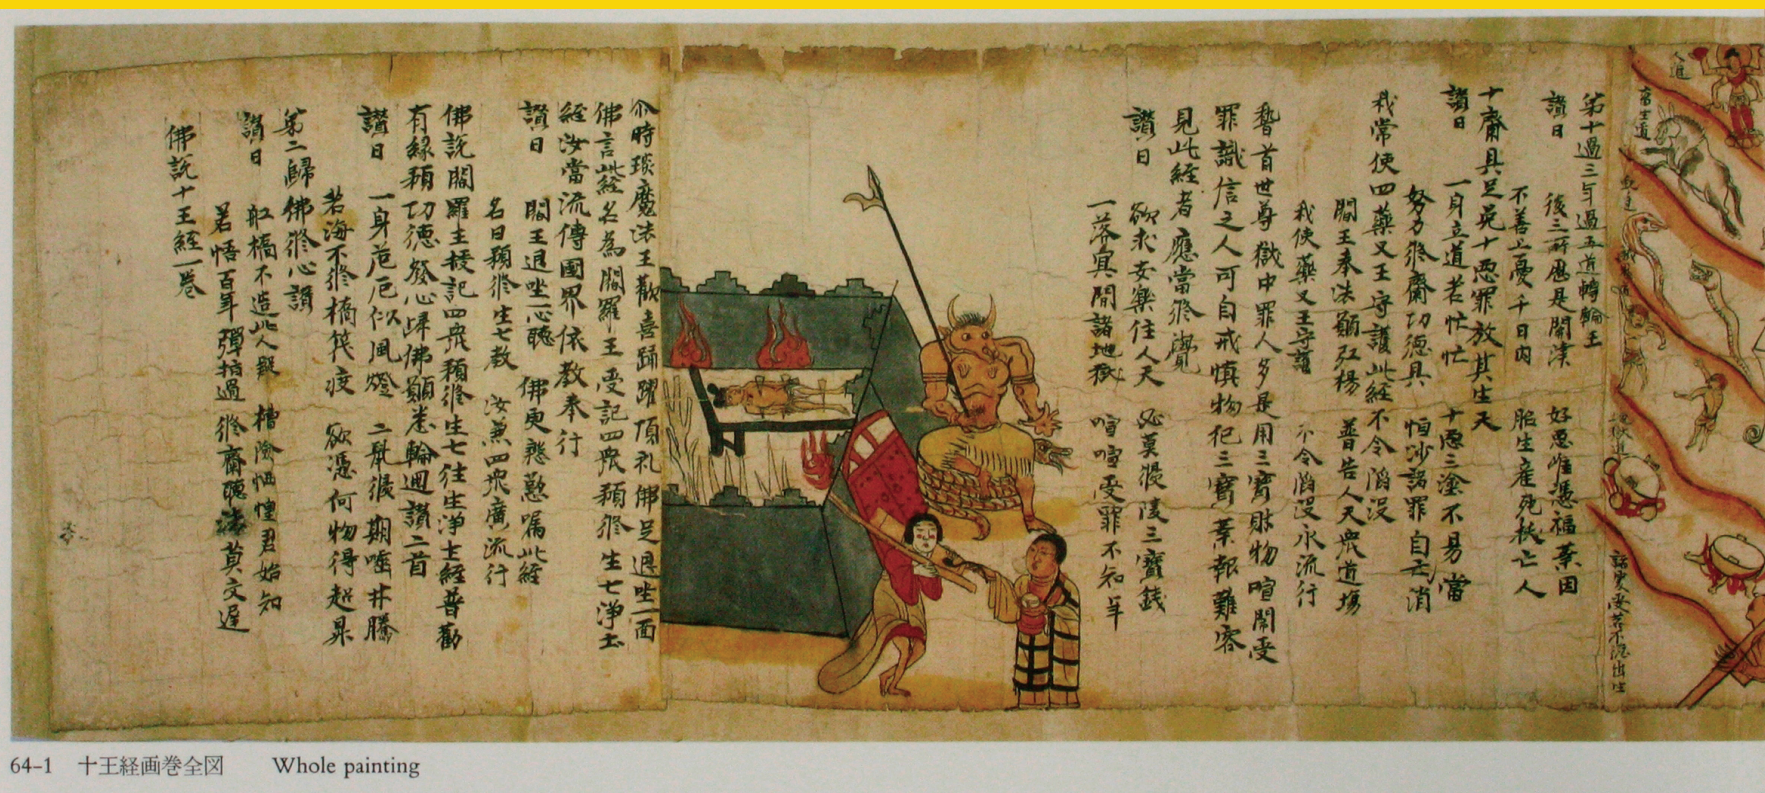 人道
第十過三年過五道轉輪王
讃曰 後三所歷是關津 好惡唯憑福業因
不善上憂千日内 胎生産死拔亡人
十齋具足免十惡罪放其生天
讃曰 一身立道若忙忙 十惡三塗不易當
努力修齋功德具 恒沙諸罪自云消
我常使四藥叉王守護此經不令陷没
閻王奉法願弘揚 普告人天衆道場
我使藥叉王守護 不令陷没永流行
稽首世尊獄中罪人多是用三寶財物喧閙受
罪識信之人可自戒慎物犯三寶業報難容
見此經者應當修覺
讃曰 欲求安樂住人天 必莫侵陵三寶錢
一落冥間諸地獄 喧喧受罪不知年
尒時琰魔法王歡喜踊躍頂礼佛足退坐一面
佛言此經名為閻羅王受記四衆預修生七淨土
經汝當流傳國界依教奉行
讃曰 閻王退坐一心聽 佛更慇懃嘱此經
名曰預修生七教 汝兼四衆廣流行
佛説閻羅王授記四衆預修生七往生淨土經普勸
有緣預功德發心歸佛願息輪迴讃二首
讃曰 一身危厄似風燈 二鼠侵期嚙井騰
苦海不修橋筏度 欲憑何物得超昇
第二歸佛修心讃
讃曰 舡橋不造此人癡 遭險恓惶君始知
若悟百年彈指過 修齋聽法莫交遲
佛説十王經一卷
64-1 十王経画巻全図 Whole painting